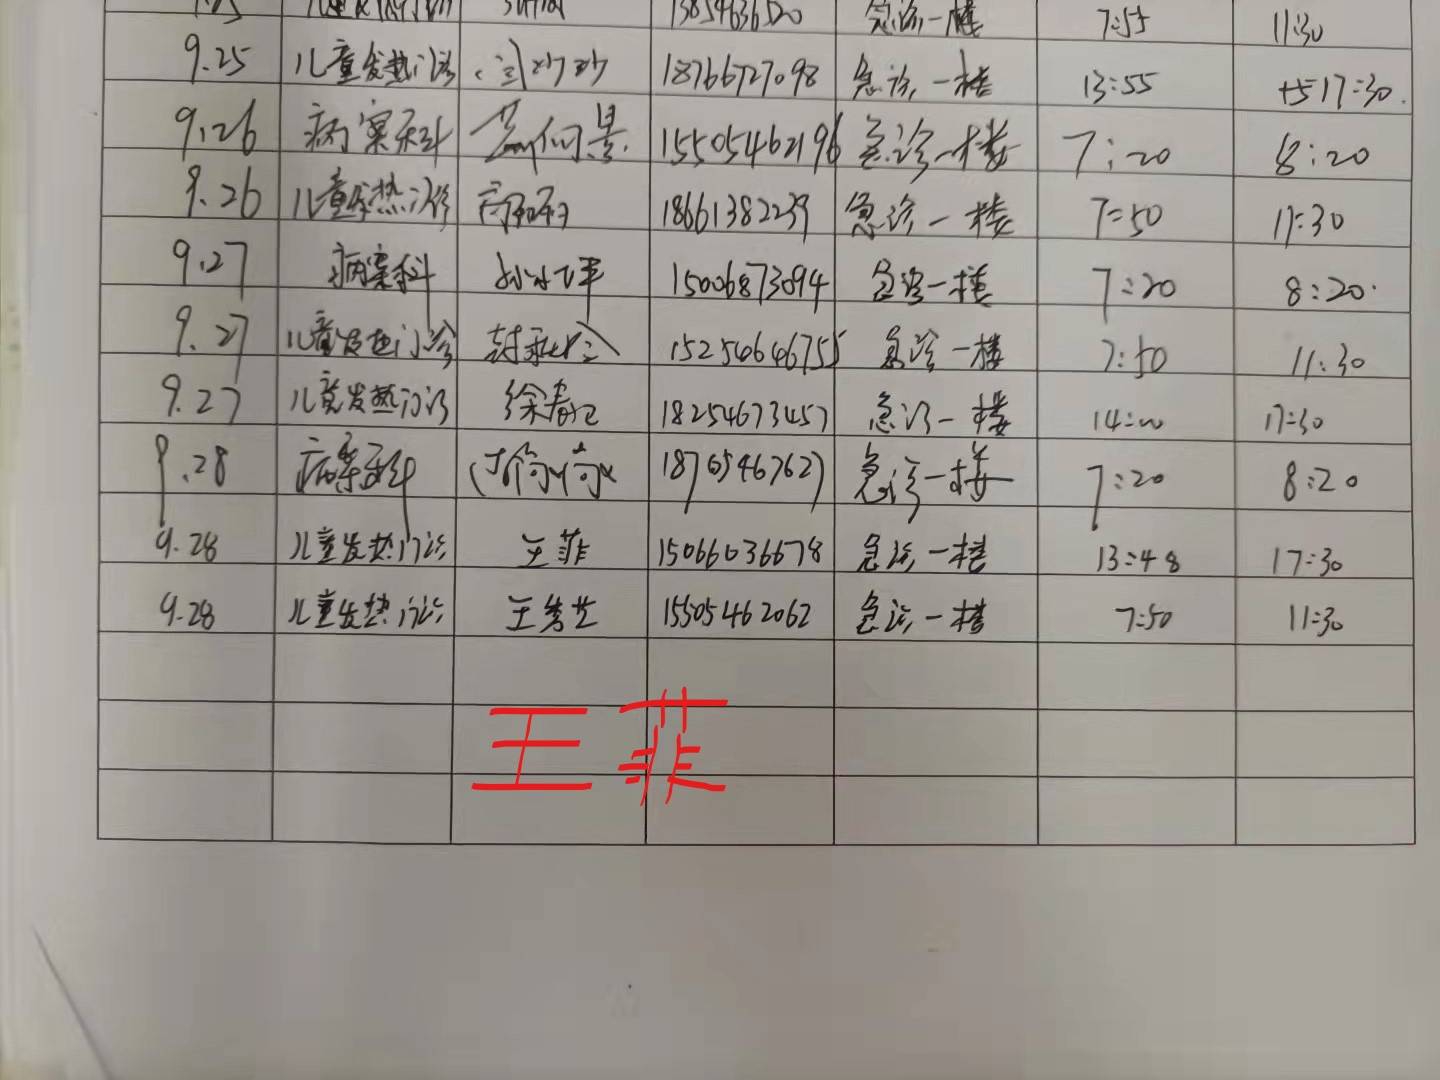 13854636520 急诊一楼 7:55 11:30
9.25 儿童发热门诊 18766727098 急诊一楼 13:55 17:30.
9.26 病案科 15505462196 急诊一楼 7:20 8:20
9.26 儿童发热门诊 18661382239 急诊一楼 7:50 11:30
9.27 病案科 15006873094 急诊一楼 7:20 8:20.
9.27 儿童发热门诊 15254646755 急诊一楼 7:50 11:30
9.27 儿童发热门诊 徐春 18254673457 急诊一楼 14:00 17:30
9.28 病案科 18765467627 急诊一楼 7:20 8:20
9.28 儿童发热门诊 王菲 15066036678 急诊一楼 13:48 17:30
9.28 儿童发热门诊 王秀芝 15505462062 急诊一楼 7:50 11:30
王菲